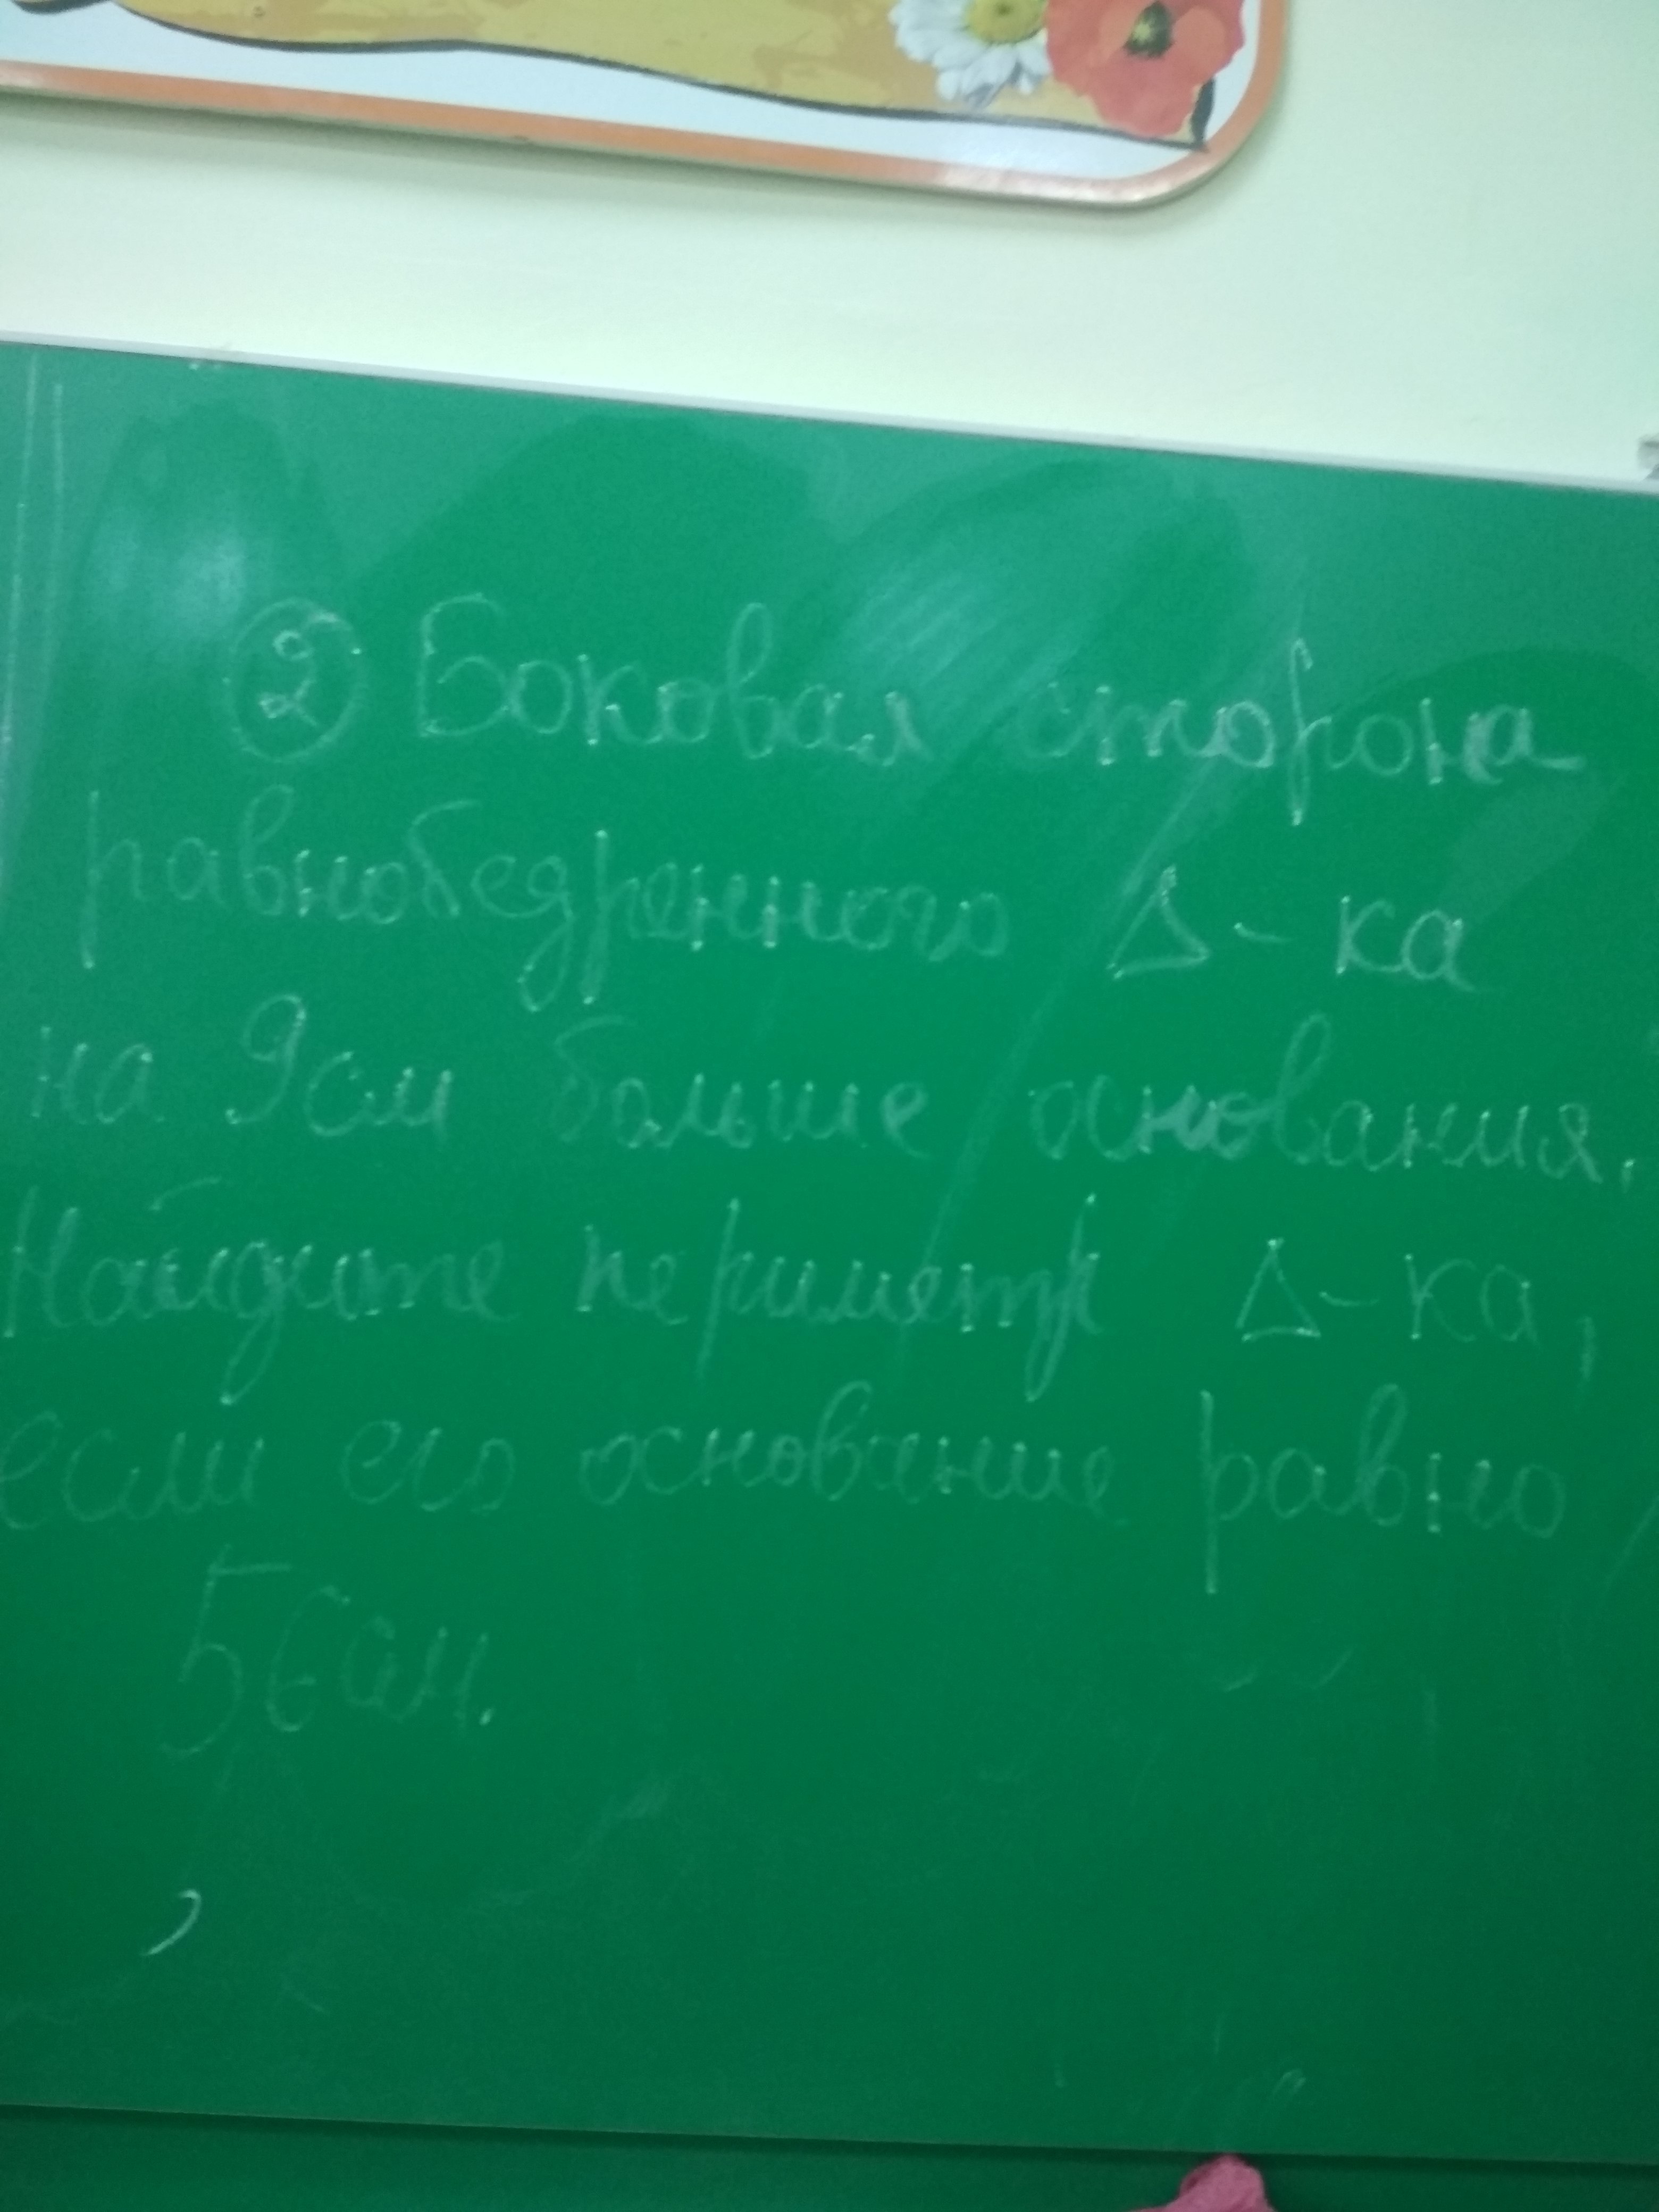 ② Боковая сторона
равнобедренного Δ-ка
на 9см больше основания.
Найдите периметр Δ-ка,
если его основание равно
56см.